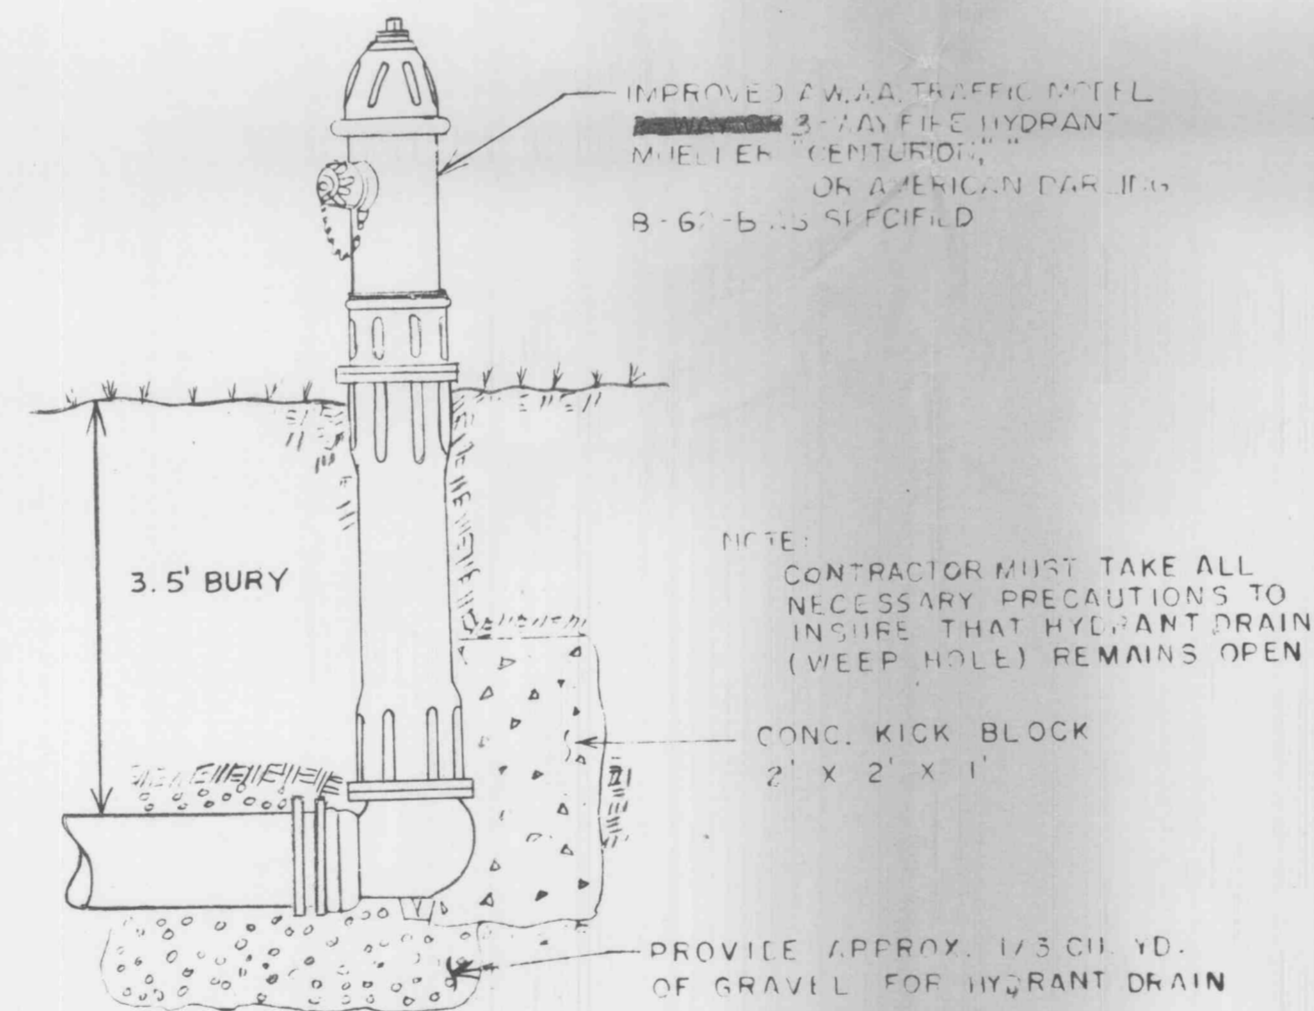 IMPROVED A.W.W.A. TRAFFIC MODEL
3-WAY FIRE HYDRANT
MUELLER "CENTURION," "
OR AMERICAN DARLING
AS SPECIFIED
3.5' BURY
NOTE:
CONTRACTOR MUST TAKE ALL
NECESSARY PRECAUTIONS TO
INSURE THAT HYDRANT DRAIN
(WEEP HOLE) REMAINS OPEN
CONC. KICK BLOCK
2' X 2' X 1'
PROVIDE APPROX. 1/3 CU. YD.
OF GRAVEL FOR HYDRANT DRAIN